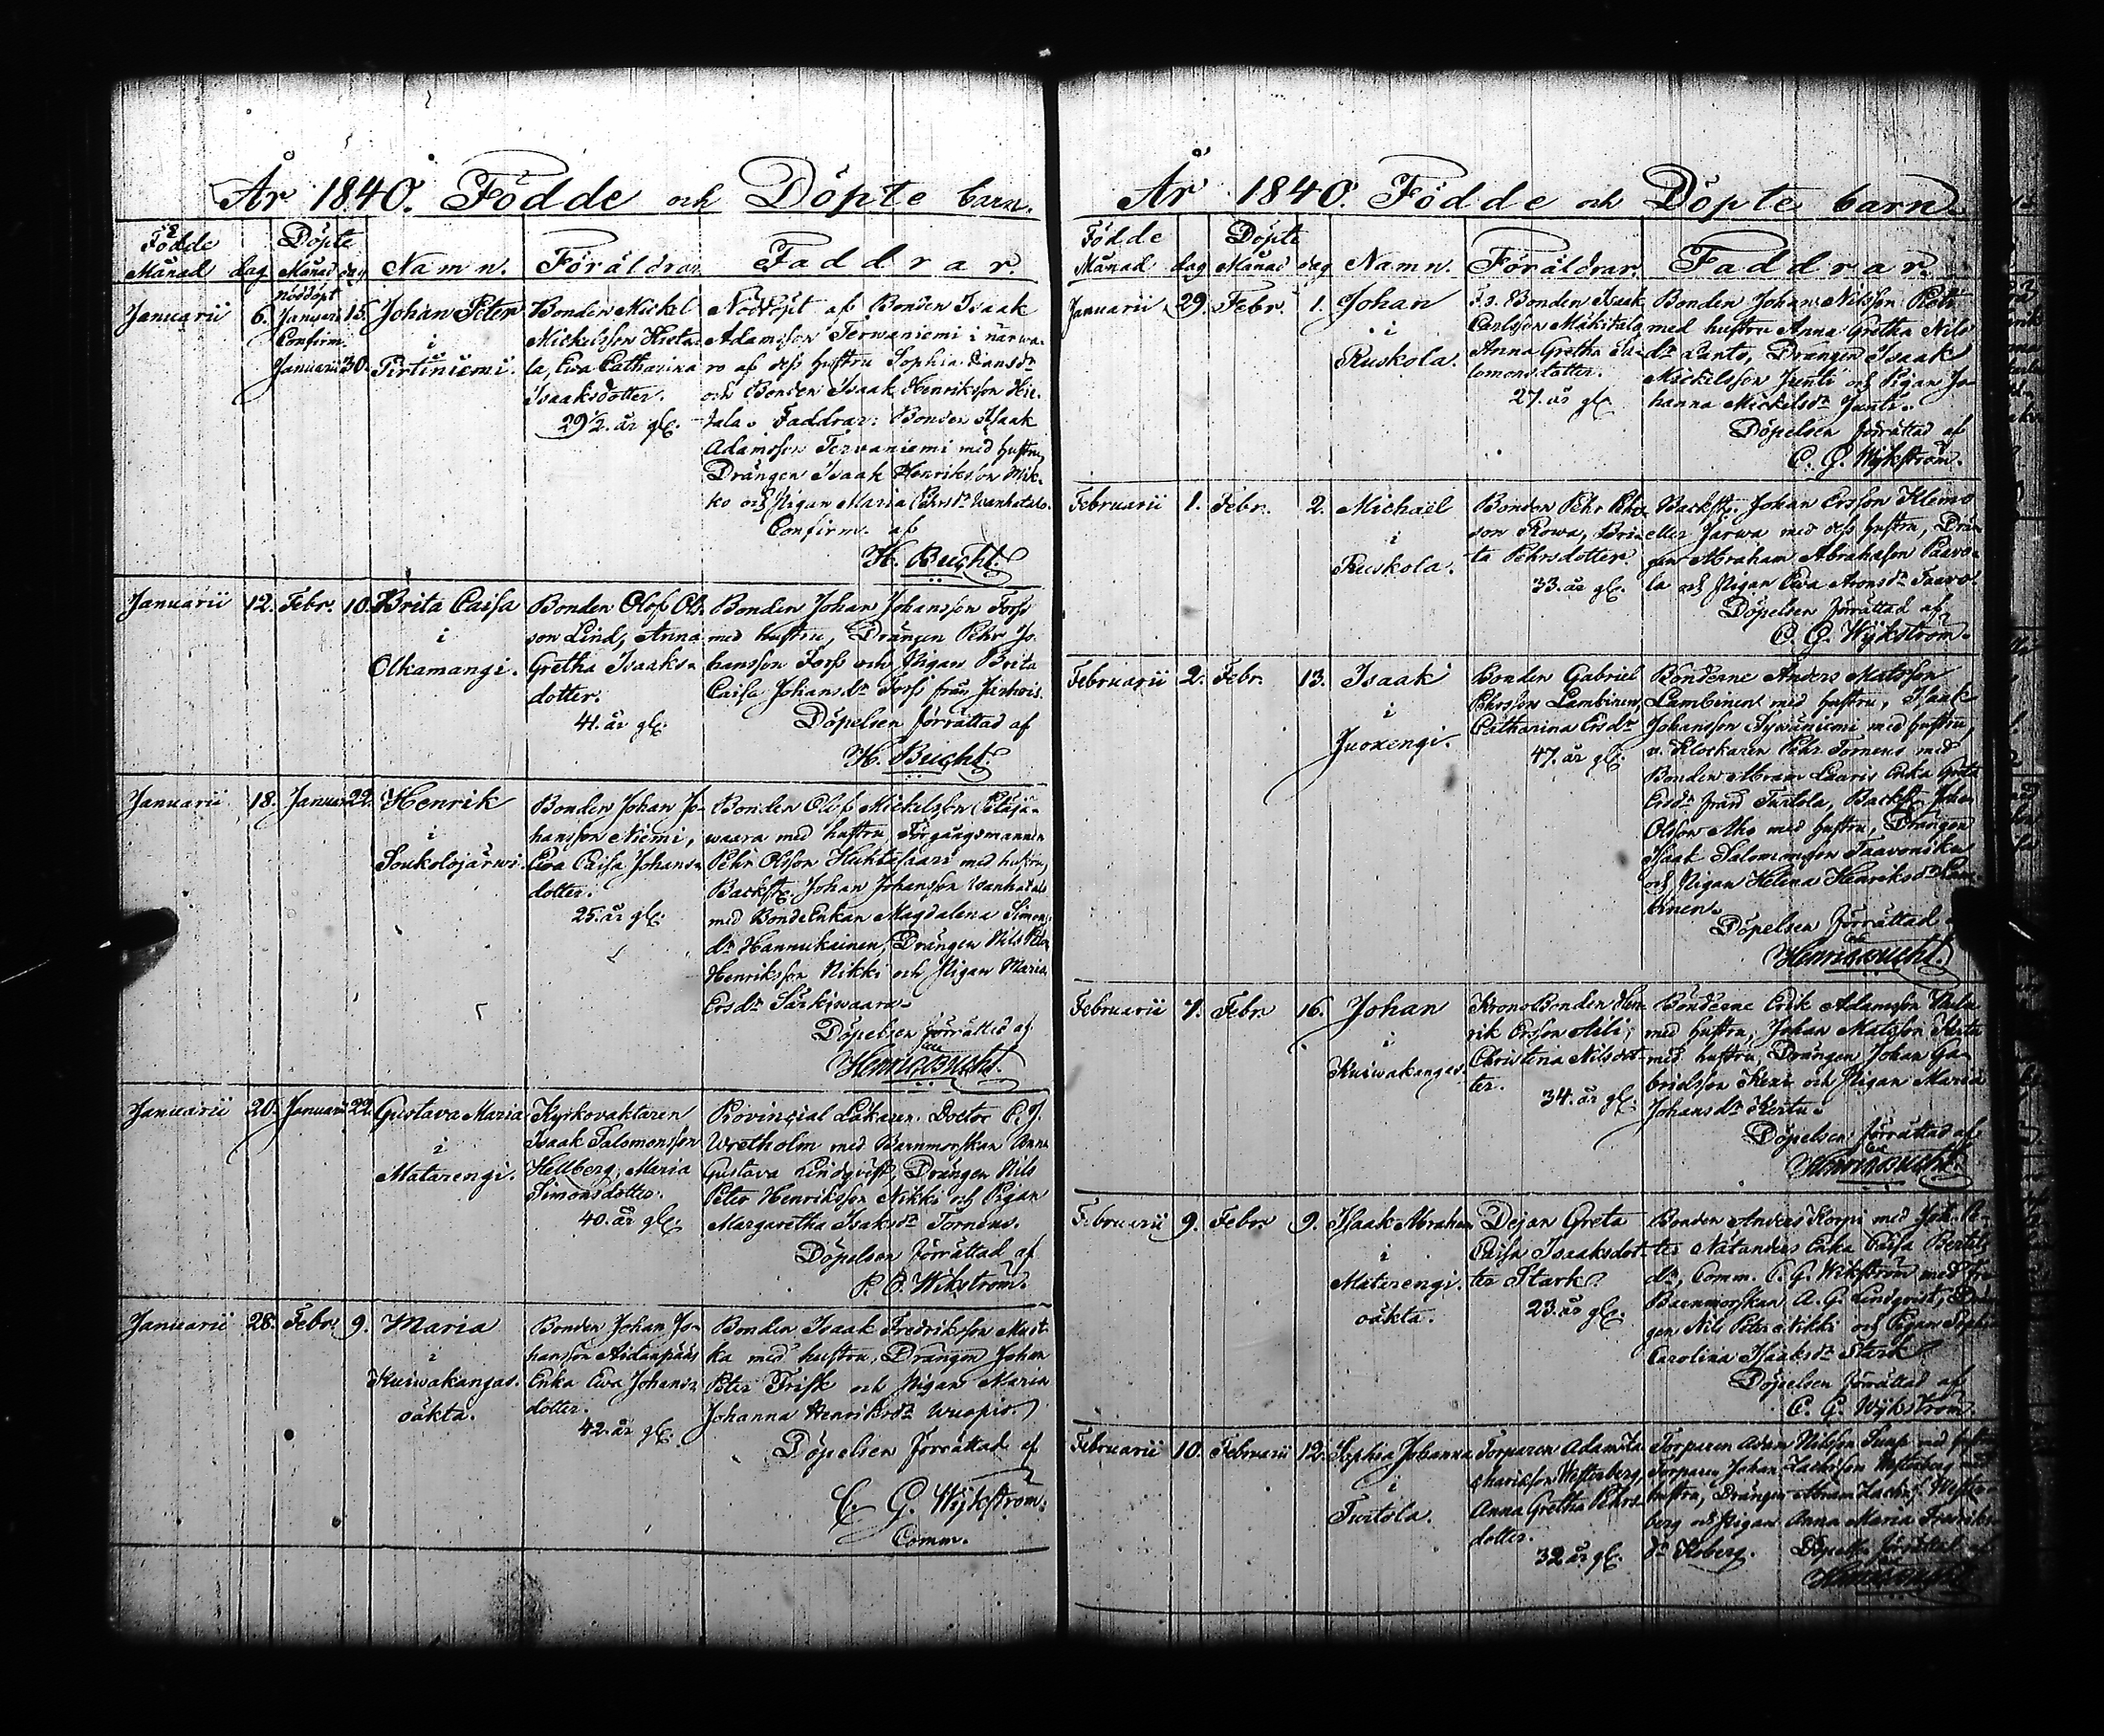 År 1840. Födde och Döpte barn.
Födde Döpte
Månad dag Månad dag Namn. Föräldrar Faddrar.
Januarii 6. nöddöpt Januar. 15. Confirm. Januarii 30.
Johan Peter
i
Pirtiniemi.
Bonden Mickel
Mickelsson Hieta-
la, Ewa Catharina
Isaaksdotter.
29 1/2. år gl.
Nöddöpt af Bonden Isaak
Adamsson Terwaniemi i närwa-
ro af dess hustru Sophia
och Bonden Isaak Henriksson Hie-
tala. Faddrar: Bonden Isaak
Adamsson Terwaniemi med hustru,
Drängen Isaak Henriksson Mik-
ko och Pigan Maria Wanhatalo.
Confirm. af
H. Bucht.
Januarii 12. Febr. 10.
Brita Caisa
i
Olkamangi.
Bonden Olof Ols-
son Lind, Anna
Gretha Isaaks-
dotter.
41. år gl.
Bonden Johan Johansson Forss
med hustru, Drängen Pehr Jo-
hansson Forss och Pigan Brita
Caisa Johansdr Forss från Jarhois.
Döpelsen förrättad af
H. Bucht.
Januarii 18. Januar. 22.
Henrik
i
Soukolojärwi.
Bonden Johan Jo-
hansson Niemi,
Ewa Caisa Johans-
dotter.
25. år gl.
Bonden Olof Mickelsson Petäjä-
waara med hustru Förgångsmannen
Pehr Olsson Huhtasaari med hustru,
Backst. Johan Johansson Wanhatalo
med BondeEnkan Magdalena Simons-
dr Hannukainen, Drängen Nils Peter
Henriksson Nikki och Pigan Maria
Ersdr Särkiwaara.
Döpelsen förrättad af
Henric Bucht.
Januarii 20. Januarii 22.
Gustava Maria
i
Matarengi.
Kyrkovaktaren
Isaak Salomonsson
Hellberg, Maria
Simonsdotter.
40. år gl.
Provincial Läkaren Doctor C. J.
Wretholm med Barnmorskan Anna
Gustava Lindqvist, Drängen Nils
Peter Henriksson Nikki och Pigan
Margaretha Isaksdr Torneus.
Döpelsen förrättad af
P. O. Wikström.
Januarii 28. Febr. 9.
Maria
i
Kuiwakangas.
oäkta.
Bonden Johan Jo-
hansson Aidanpääs
Enka Ewa Johans-
dotter.
42. år gl.
Bonden Isaak Fredriksson Must-
ka med hustru, Drängen Johan
Peter Frisk och Pigan Maria
Johanna Henriksdr Wuopio.
Döpelsen förrättad af
C. G. Wijkström.
Comm.
År 1840. Födde och Döpte barn.
Födde Döpte
Månad dag Månad dag Namn. Föräldrar. Faddrar.
Januarii 29. Febr. 1.
Johan
i
Ruskola.
F.d. Bonden Isaak
Carlsson Mäkitalo,
Anna Gretha Sa-
lomonsdotter.
27. år gl.
Bonden Johan Nilsson
med hustru Anna Gretha Nils-
dr Lanto, Drängen Isaak
Mickelsson Junti och Pigan Jo-
hanna Mickelsdr Junti.
Döpelsen förrättad af
C. G. Wijkström.
Februarii 1. Febr. 2.
Michael
i
Ruskola.
Bonden Pehr Pehrs-
son Rowa, Bri-
ta Pehrsdotter.
33. år gl.
Backst. Johan Ersson Klemo
eller Jarwa med dess hustru, Drän-
gen Abraham Abrahasson Paavo-
la och Pigan Ewa Aronsdr
Döpelsen förrättad af
C. G. Wijkström.
Februarii 2. Febr. 13.
Isaak
i
Juoxengi.
Bonden Gabriel
Pehrsson Lambinen,
Catharina Ersdr
47. år gl.
Bönderne Anders Matsson
Lambinen med hustru, Isaak
Johansson med hustru,
Klockaren Pehr Torneus med
Bonden Abram Lauris Enka Greta
Ersdr från Turtola, Backst. Johan
Olsson Aho med hustru, Drängen
Isaak Salomonsson Taavonika
och Pigan Helena Henriksdr Lam-
binen.
Döpelsen förrättad
Henric Bucht.
Februarii 7. Febr. 16.
Johan
i
Kuiwakangas.
KronoBonden Hen-
rik Ersson Aili,
Christina Nilsdot-
ter.
34. år gl.
Bönderne Erik Adamsson
med hustru, Johan Matsson Kertu
med hustru, Drängen Johan Ga-
brielsson Kexi och Pigan Maria
Johansdr Kertu.
Döpelsen förrättad af
Henric Bucht.
Februarii 9. Febr. 9.
Isaak Abraham
i
Matarengi.
oäkta.
Dejan Greta
Caisa Isaaksdot-
ter Stark.
23. år gl.
Bonden Anders Korpi med
Natanders Enka Caisa Bertils-
dr, Comm. C. G. Wikström med
Barnmorskan A. G. Lindqvist, Drän-
gen Nils Peter Nikki och Pigan Sophia
Carolina Isaaksdr Stark.
Döpelsen förrättad af
C. G. Wijkström.
Februarii 10. Februarii 12.
Sophia Johanna
i
Turtola.
Torparen Adam Za-
chariksson Westerberg,
Anna Gretha Pehrs-
dotter.
32 år gl.
Torparen Adam Nilsson med hustru
Torparen Johan Westerberg med
hustru, Drängen Abram Wester-
berg och Pigan Anna Maria Fredriks-
dr Koberg. Döpelsen förrättad af